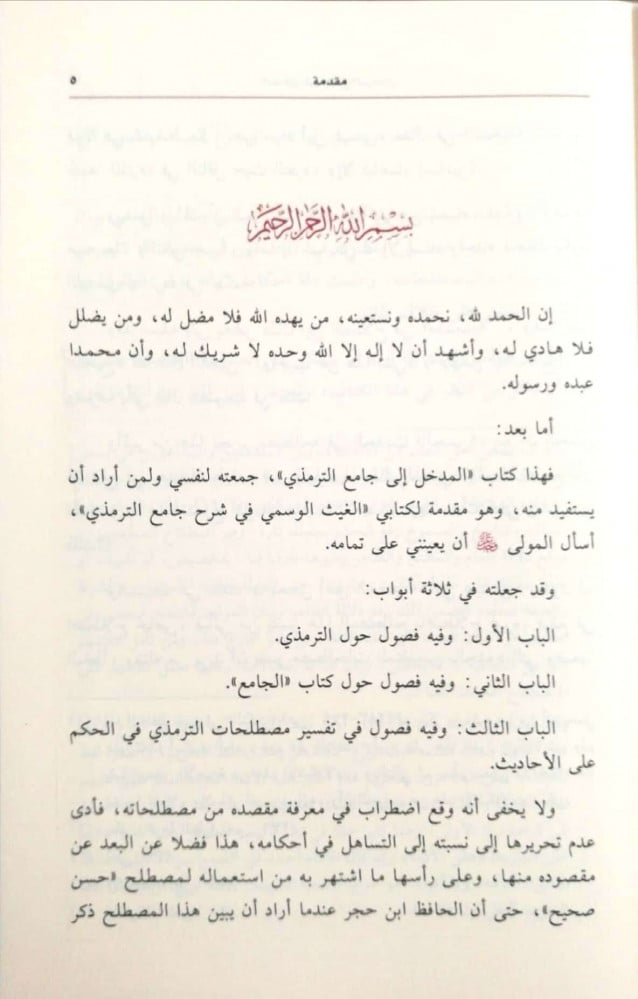 مقدمة ٥
بسم الله الرحمن الرحيم
إن الحمد لله، نحمده ونستعينه، من يهده الله فلا مضل له، ومن يضلل
فلا هادي له، وأشهد أن لا إله إلا الله وحده لا شريك له، وأن محمدا
عبده ورسوله.
أما بعد:
فهذا كتاب «المدخل إلى جامع الترمذي»، جمعته لنفسي ولمن أراد أن
يستفيد منه، وهو مقدمة لكتابي «الغيث الوسمي في شرح جامع الترمذي»،
أسأل المولى أن يعينني على تمامه.
وقد جعلته في ثلاثة أبواب:
الباب الأول: وفيه فصول حول الترمذي.
الباب الثاني: وفيه فصول حول كتاب «الجامع».
الباب الثالث: وفيه فصول في تفسير مصطلحات الترمذي في الحكم
على الأحاديث.
ولا يخفى أنه وقع اضطراب في معرفة مقصده من مصطلحاته، فأدى
عدم تحريرها إلى نسبته إلى التساهل في أحكامه، هذا فضلا عن البعد عن
مقصوده منها، وعلى رأسها ما اشتهر به من استعماله لمصطلح «حسن
صحيح»، حتى أن الحافظ ابن حجر عندما أراد أن يبين هذا المصطلح ذكر